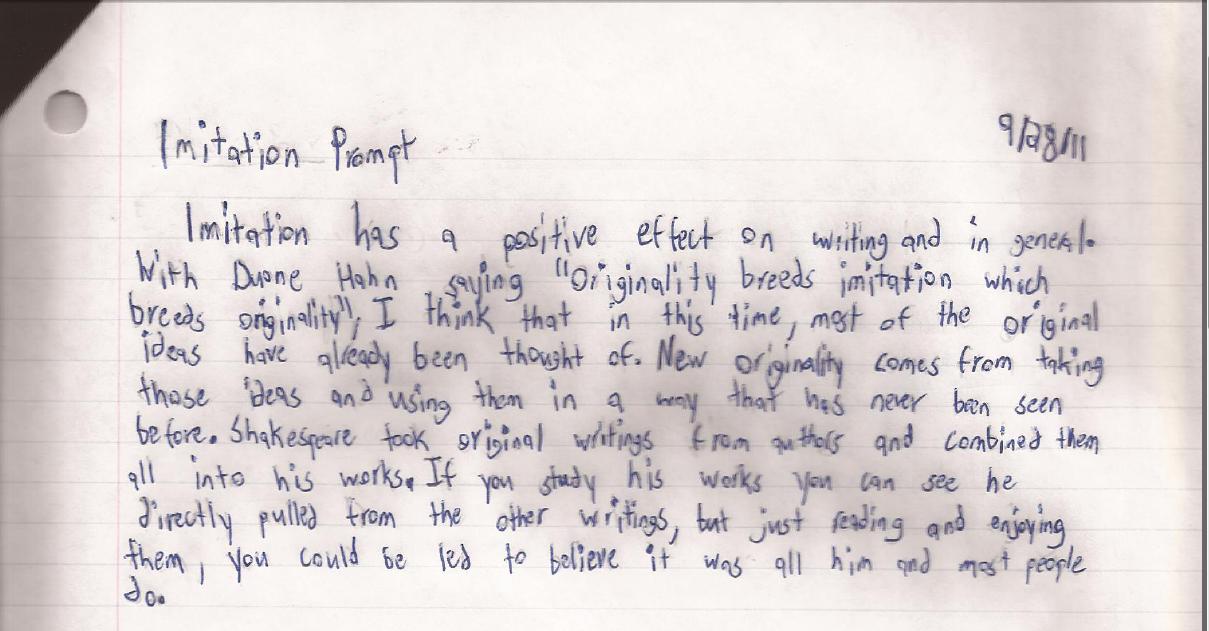 Imitation Prompt
9/28/11
Imitation has a positive effect on writing and in general.
With Duane Hahn saying "Originality breeds imitation which
breeds originality", I think that in this time, most of the original
ideas have already been thought of. New originality comes from taking
those ideas and using them in a way that has never been seen
before. Shakespeare took original writings from authors and combined them
all into his works. If you study his works you can see he
directly pulled from the other writings, but just reading and enjoying
them, you could be led to believe it was all him and most people
do.